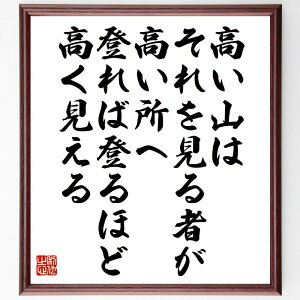 高い山は
それを見る者が
高い所へ
登れば登るほど
高く見える